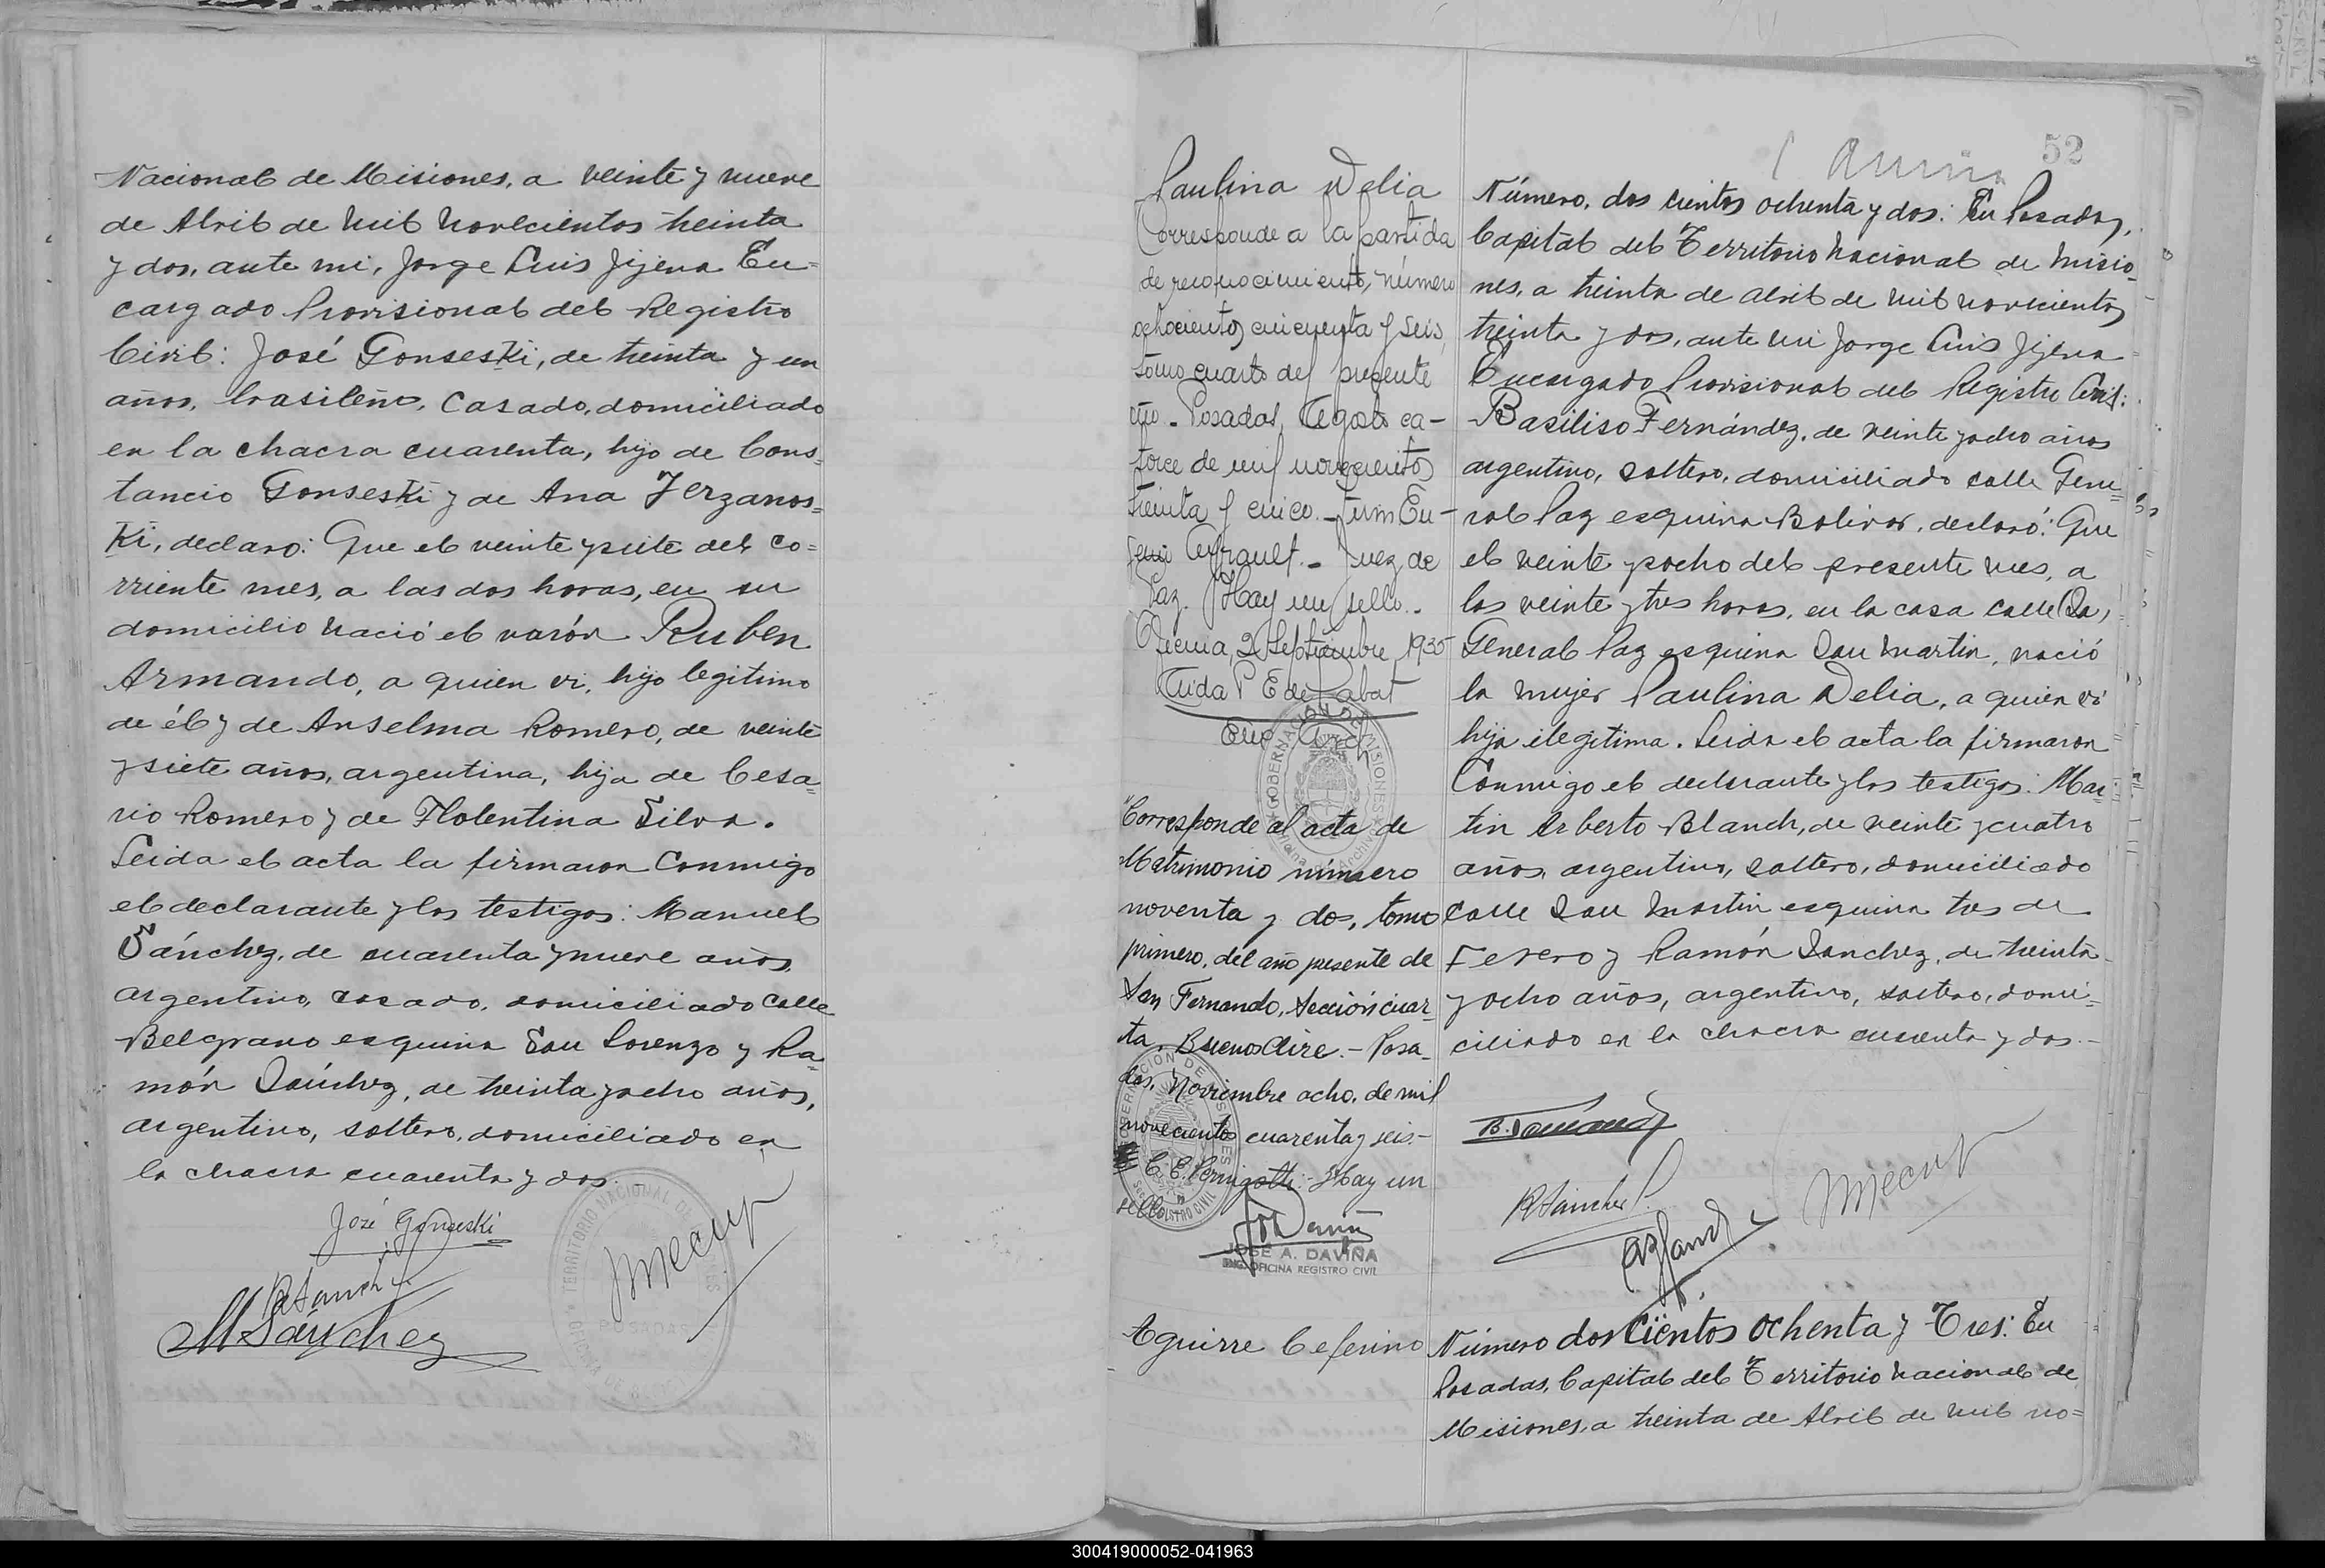 Nacional de Misiones, a veinte y nueve
de Abril de mil novecientos treinta
y dos, ante mi, Jorge Luis Jijena En=
cargado Provisional del Registro
Civil: José Gonseski, de treinta y un
años, brasileño, casado, domiciliado
en la chacra cuarenta, hijo de Cons=
tancio Gonseski y de Ana Jerzanos=
ki, declaró: Que el veinte y siete del co=
rriente mes, a las dos horas, en su
domicilio nació el varón Ruben
Armando, a quien vi, hijo legitimo
de él y de Anselma Romero, de veinte
y siete años, argentina, hija de Cesa=
rio Romero y de Florentina Silva.
Leida el acta la firmaron conmigo
el declarante y los testigos: Manuel
Sánchez, de cuarenta y nueve años,
argentino, casado, domiciliado calle
Belgrano esquina San Lorenzo y Ra=
món Sánchez, de treinta y ocho años,
argentino, soltero, domiciliado en
la chacra cuarenta y dos.
José Gonseski
R Sanchez
M Sánchez
TERRITORIO NACIONAL DE
POSADAS
52
Paulina Delia
Corresponde a la partida
de reconocimiento, número
ochocientos cincuenta y seis,
tomo cuarto del presente
año. Posadas, Agosto ca-
torce de mil novecientos
treinta y cinco.
Juez de
Paz. Hay un sello.
2 Septiembre 1935
Aida P E de Labat
GOBERNACION DE MISIONES
"Corresponde al acta de
Matrimonio número
noventa y dos, tomo
primero, del año presente de
San Fernando, Sección cuar-
ta, Buenos Aire. - Posa-
das, Noviembre ocho, de mil
novecientos cuarenta y seis.-
Hay un
sello
JOSE A. DAVIÑA
ENC. OFICINA REGISTRO CIVIL
Número, dos cientos ochenta y dos: En Posadas,
Capital del Territorio Nacional de Misio=
nes, a treinta de abril de mil novecientos
treinta y dos, ante mi Jorge Luis Jijena
Encargado Provisional del Registro Civil:
Basiliso Fernández, de veinte y ocho años
argentino, soltero, domiciliado calle Gene=
ral Paz esquina Bolivar, declaró: Que
el veinte y ocho del presente mes, a
las veinte y tres horas, en la casa calle
General Paz esquina San Martin, nació
la mujer Paulina Delia, a quien vi
hija ilegitima. Leida el acta la firmaron
conmigo el declarante y los testigos: Mar=
tin Arberto Blanch, de veinte y cuatro
años, argentino, soltero, domiciliado
calle San Martin esquina tres de
Febrero y Ramón Sanchez, de treinta
y ocho años, argentino, soltero, domi=
ciliado en la chacra cuarenta y dos.-
B. Fernandez
R Sanchez
Aguirre Ceferino
Número dos Cientos Ochenta y Tres: En
Posadas, Capital del Territorio Nacional de
Misiones, a treinta de Abril de mil no=
300419000052-041963